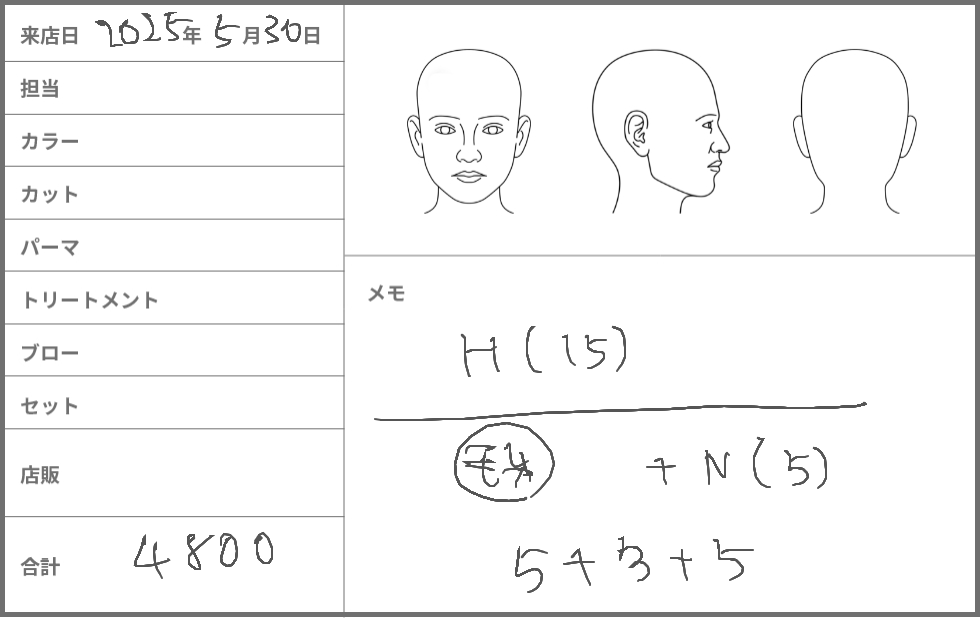 来店日 2025年 5月30日
担当
カラー
カット
パーマ
トリートメント
ブロー
セット
店販
合計 4800
メモ
H (15)
+ N (5)
5+3+5